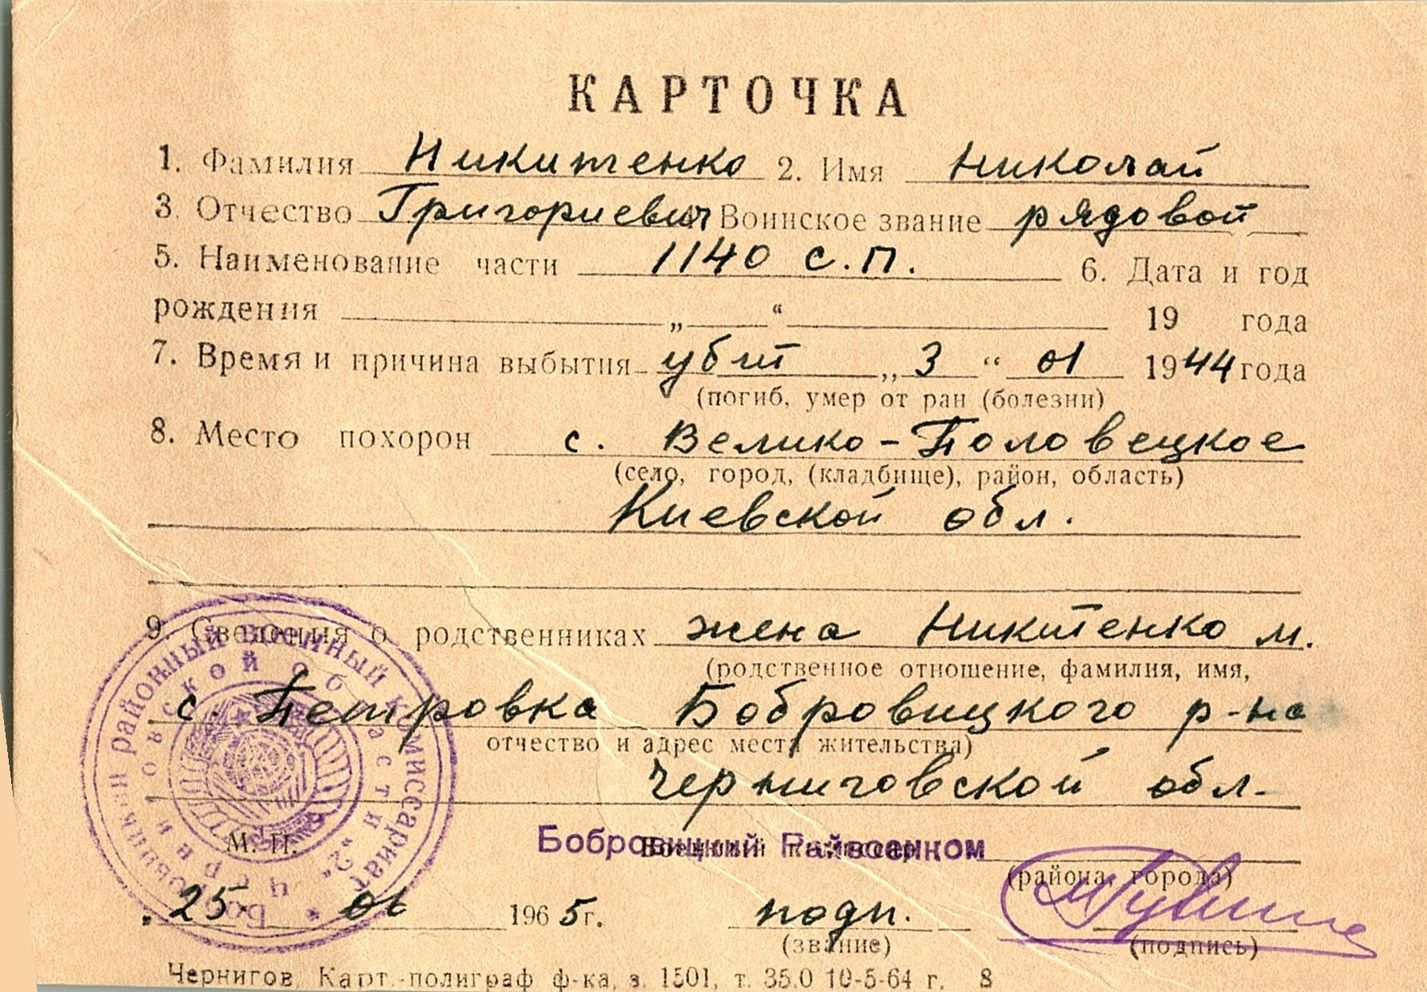 КАРТОЧКА
1. Фамилия Никитенко 2. Имя Николай
3. Отчество Григориевич Воинское звание рядовой
5. Наименование части 1140 с.п. 6. Дата и год
рождения „ “ 19 года
7. Время и причина выбытия убит „ 3 “ 01 1944 года
(погиб, умер от ран (болезни)
8. Место похорон с. Велико-Половецкое
(село, город, (кладбище), район, область)
Киевской обл.
9. Сведения о родственниках жена Никитенко М.
(родственное отношение, фамилия, имя,
с. Петровка Бобровицкого р-на
отчество и адрес места жительства)
Черниговской обл.
М. П.
Бобровицкий Райвоенком
Военный комиссар
(района, города)
25 06 1965 г. подп.
(звание) (подпись)
Чернигов, Карт.-полиграф ф-ка, з. 1501, т. 35.0 10-5-64 г. 8
районный военный комиссариат
области „2“